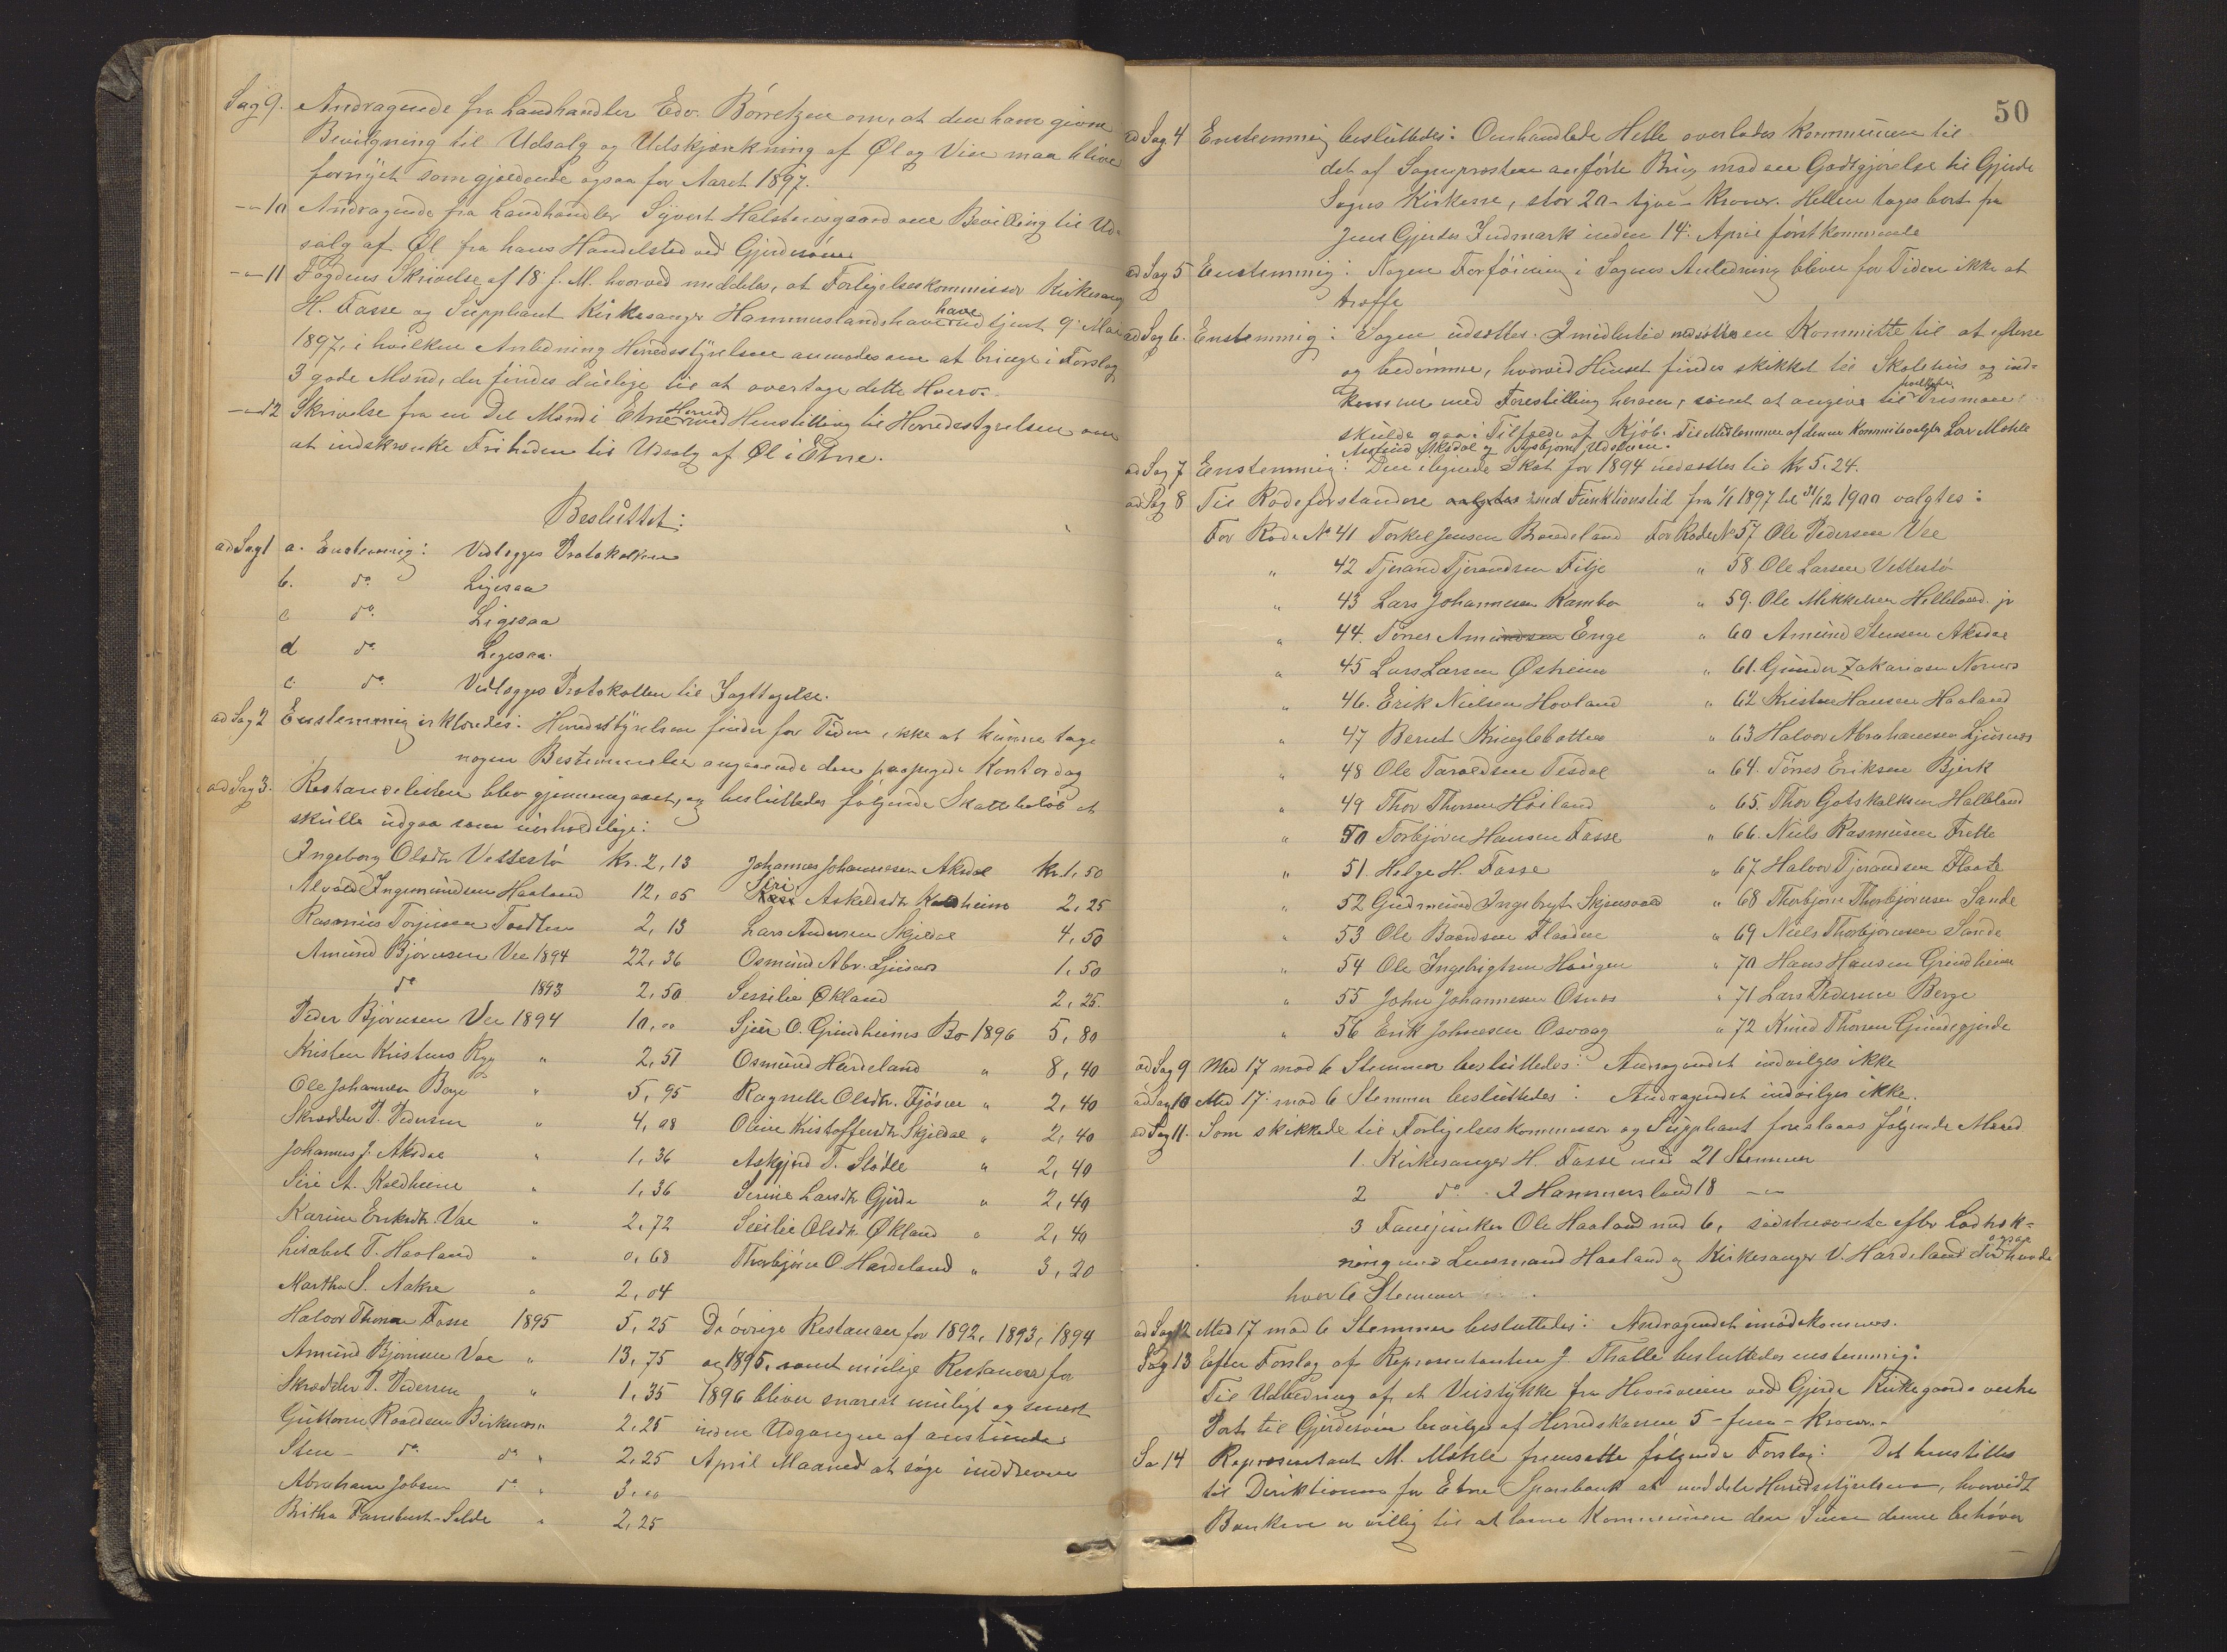 Sag 9. Andragende fra Landhandler Edv. Børretzen om, at den ham givne
Bevilgning til Udsalg og Udskjænkning af Øl og Vin maa blive
fornyet som gjældende ogsaa for Aaret 1897.
-"-10 Andragende fra Landhandler Syvert Halsteinsgaard om Bevilling til Ud-
salg af Øl fra hans Handelsted ved Gjerdesøen
-"-11 Fogdens Skrivelse af 18 f. M. hvorved meddeles, at Forligelseskommissær Kirkesang
H. Fasse og Suppliant Kirkesanger Hammerslands have udtjent 9 Mai
1897, i hvilken Anledning Herredsstyrelsen anmodes om at bringe i Forslag
3 gode Mænd, der findes duelige til at overtage dette Hverv.
-"-12 Skrivelse fra en Del Mænd i Etne Herred med Henstilling til Herredsstyrelsen om
at indskrænke Friheden til Udsalg af Øl i Etne.
Besluttet:
ad Sag 1 a. Enstemmig: Vedlægges Protokollen
b. do Ligesaa
c do Ligesaa
d do Ligesaa.
e. do Vedlægges Protokollen til Iagttagelse.
ad Sag 2 Enstemmig erklæredes: Herredsstyrelsen finder for Tiden ikke at kunne tage
nogen Bestemmelse angaaende den paapegede Kontordag
ad Sag 3. Restanselisten blev gjennemgaaet, og besluttedes følgende Skattebeløb at
skulle udgaa som uerholdelige:
Ingeborg Olsdtr Vettestø Kr. 2,13 Johannes Johannesen Aksdal Kr. 1,50
Alvald Ingemundsen Haaland 12,05 Siri Askeldsdtr Kaldheim 2,25
Rasmus Torjusen 2,13 Lars Andersen Skjeldal 4,50
Amund Bjørnsen Vee 1894 22,36 Osmund Abr. Ljusnes 1,50
do 1893 2,50 Sessilie Økland 2,25.
Peder Bjørnsen Vee 1894 10,00 Sjur O. Grindheims Bo 1896 5,80
Kristen Kristens Ryg " 2,51 Osmund Hardeland " 8,40
Ole Johannesen Berge " 5,95 Ragnilla Olsdtr. Fjøsne " 2,40
Skrædder P. Pedersen " 4,08 Oline Kristoffersdtr Skjeldal " 2,40
Johannes J. Aksdal " 1,36 Askjerd T. Sløtte " 2,40
Siri A. Kaldheim " 1,36 Serine Larsdtr Gjerde " 2,40
Karine Eriksdtr. Vae " 2,72 Sesilie Olsdtr. Økland " 2,40
Lisabet T. Haaland " 0,68 Thorbjørn O. Hardeland " 3,20
Martha S. Aakre " 2,04
Halvor Thorsen Fasse 1895 5,25 De øvrige Restanser for 1892, 1893, 1894
Amund Bjørnsen Vae " 13,75 og 1895, samt mulige Restanser for
Skrædder P. Pedersen " 1,35 1896 bliver snarest muligt og senest
Guttorm Roaldsen Birkenæs " 2,25 inden Udgangen af anstundende
Sten - do do " 2,25 April Maaned at søge inddrevne
Abraham Jobsen do " 3,00
Britha Tarebust-Selde " 2,25
50
ad Sag 4 Enstemmig besluttedes: Omhandlede Helle overlades Kommunen til
det af Sogneprosten anførte Brug mod en Godtgjørelse til Gjerde
Sogns Kirkesse, stor 20 - tyve - Kroner. Hellen tages bort fra
Jens Gjerdes Indmark inden 14. April førstkommende
ad Sag 5 Enstemmig: Nogen Forføining i Sagens Anledning bliver for Tiden ikke at
træffe
ad Sag 6. Enstemmig: Sagen udsættes. Imidlertid nedsættes en Kommitte til at efterse
og bedømme, hvorvid Huset findes skikket til Skolehus og ind-
komme med Forestilling herom, samt at angive til hvilken Pris man
skulde gaa i Tilfælde af Kjøb. Til Medlemmer af denne Kommite valgtes Lars Mæhle
Amund Aksdal og Asbjørn Udstuen.
ad Sag 7 Enstemmig: Den ilignede Skat for 1894 nedsættes til Kr 5.24.
ad Sag 8 Til Rodeforstandere valgtes med Funktionstid fra 1/1 1897 til 31/12 1900 valgtes:
For Rode No 41 Torkel Jensen Brandeland For Rode No 57 Ole Pedersen Vae
" 42 Tjerand Tjerandsen Fitje " 58. Ole Larsen Vettestø
" 43 Lars Johannesen Rambø " 59. Ole Mikkelsen Helleland jr
" 44. Tønes Amundsen Enge " 60 Amund Stensen Aksdal
" 45 Lars Larsen Østheim " 61. Gunder Zakariasen Nernes
" 46. Erik Nielsen Hovland " 62 Kristen Hansen Haaland
" 47 Bernt Kringlebotten " 63 Halvor Abrahamsen Ljusnes
" 48 Ole Taraldsen Tesdal " 64. Tønes Eriksen Bjerk
" 49 Thor Thorsen Høiland " 65. Thor Gotskalksen Helleland
" 50 Torbjørn Hansen Fasse " 66. Niels Rasmusen Frette
" 51 Helge H. Fasse " 67 Halvor Tjerandsen Flaate
" 52 Gudmund Ingebrigt. Skjensvold " 68 Thorbjørn Thorbjørnsen Sande
" 53 Ole Baardsen Flaaden " 69 Niels Thorbjørnsen Sande
" 54 Ole Ingebrigtsen Haugen " 70 Hans Hansen Grindheim
" 55 John Johannesen Osnes " 71 Lars Pedersen Berge
" 56 Erik Johnesen Osvaag " 72 Knud Thorsen Gundegjerde
ad Sag 9 Med 17 mod 6 Stemmer besluttedes: Andragendet indvilges ikke
ad Sag 10 Med 17 mod 6 Stemmer besluttedes: Andragendet indvilges ikke.
ad Sag 11. Som skikkede til Forligelseskommissær og Suppliant foreslaaes følgende Mænd
1. Kirkesanger H. Fasse med 21 Stemmer
2 do I Hammersland 18 -"-
3 Fanejunker Ole Haaland med 6, sidstnævnte efter Lodtræk-
ning med Lensmand Haaland og Kirkesanger V. Hardeland der ogsaa havde
hver 6 Stemmer
ad Sag 12 Med 17 mod 6 Stemmer besluttedes: Andragendet imødekommes.
Sag 13 Efter Forslag af Repræsentanten J. Thalle besluttedes enstemmig:
Til Udbedring af et Veistykke fra Hovedveien ved Gjerde Kirkegaards vestre
Port til Gjerdesøen bevilges af Herredskassen 5 - fem - Kroner.-
Sa 14 Repræsentant M. Mæhle fremsatte følgende Forslag: Det henstilles
til Direktionen for Etne Sparebank at meddele Herredsstyrelsen, hvorvidt
Banken er villig til at laane Kommunen den Sum denne behøver